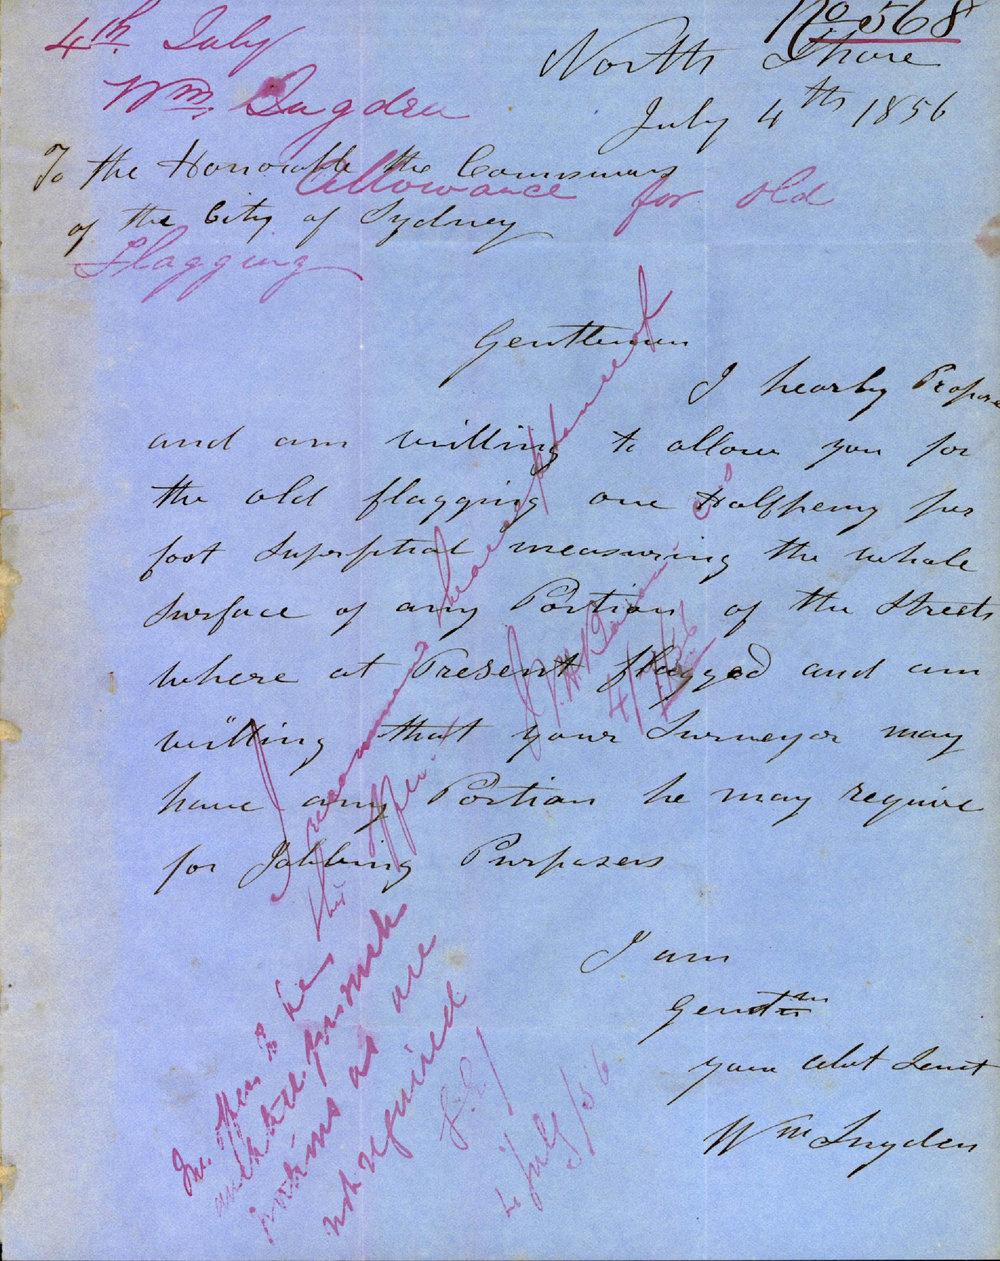 No 568
4th July
Wm. Sugden
Allowance for old
Flagging
North Shore
July 4th 1856
To the Honorable the Commrs
of the City of Sydney
Gentlemen
I hearby Propose
and am willing to allow you for
the old flagging one Halfpenny per
foot Superfitial measuring the whole
Surface of any Portion of the Streets
where at Present flagged and am
willing that your Surveyor may
have any Portion he may require
for Jobbing Purposes
I am
Gentmn
your obdt Servt
Wm Sugden
I recommend the acceptance of
this offer.
4/7/56
The offer to be
accepted for such
portions as are
not required
4 July/56